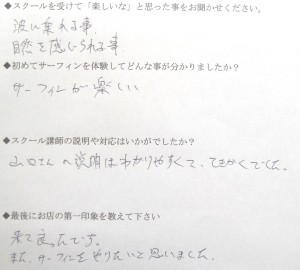 ◆スクールを受けて「楽しいな」と思った事をお聞かせください。
波に乗れる事.
自然を感じられる事
◆初めてサーフィンを体験してどんな事が分かりましたか？
サーフィンが楽しい
◆スクール講師の説明や対応はいかがでしたか？
山口さんの説明はわかりやすくて、てきかくでした。
◆最後にお店の第一印象を教えて下さい
来て良ったです。
また、サーフィンをやりたいと思いました。